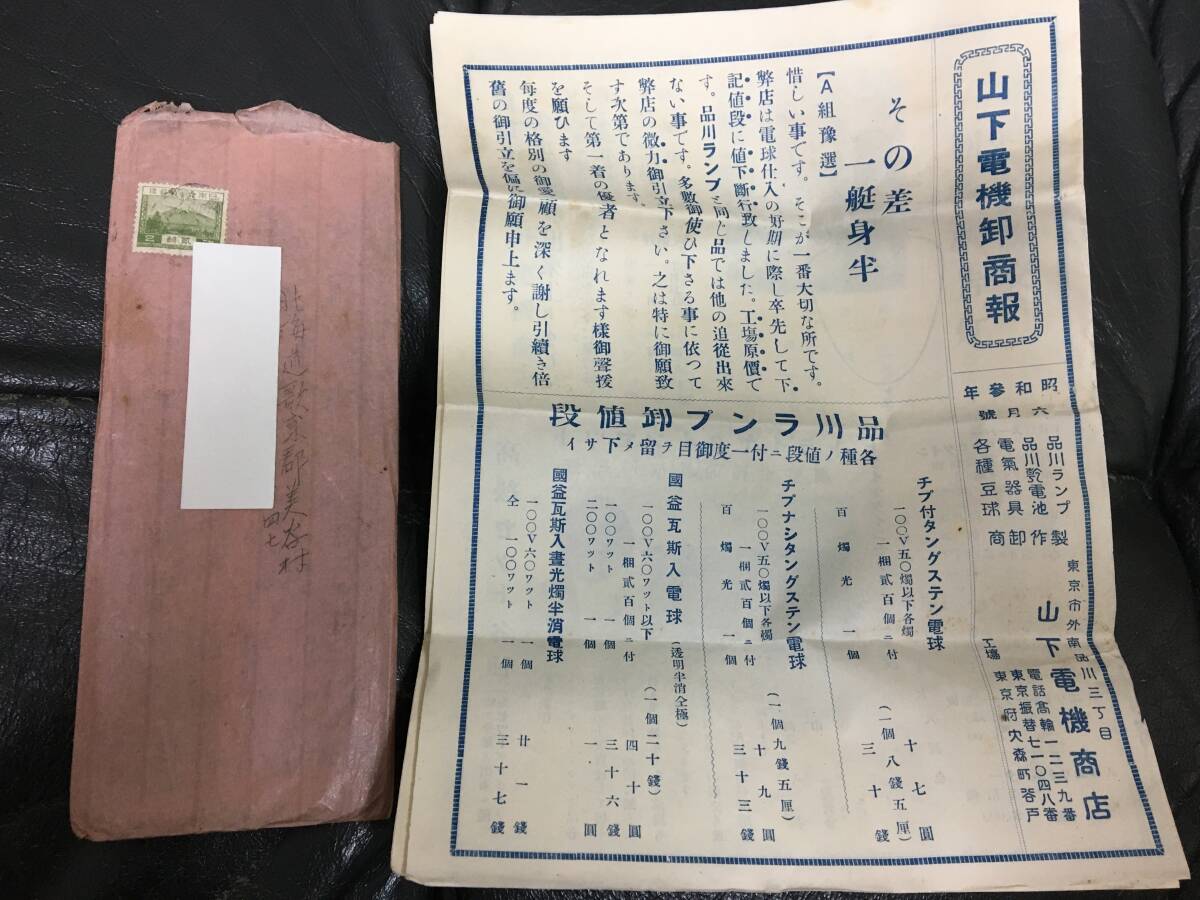 山下電機卸商報
昭和參年
六月號
品川ランプ
品川乾電池
電氣器具
各種豆球
製作卸商
東京市外南品川三丁目
山下電機商店
電話高輪一二三九番
東京振替七一〇四八番
工場 東京府大森町谷戸
その差
一艇身半
【A組豫選】
惜しい事です。そこが一番大切な所です。
弊店は電球仕入の好期に際し卒先して下
記値段に値下斷行致しました。工塲原價で
す。品川ランプと同じ品では他の追從出來
ない事です。多數御使ひ下さる事に依つて
弊店の微力御引立下さい。之は特に御願致
す次第であります。
そして第一着の優者となれます樣御聲援
を願ひます
每度の格別の御愛顧を深く謝し引續き倍
舊の御引立を偏に御願申上ます。
品川ランプ卸値段
各種ノ値段ニ付一度御目ヲ留メ下サイ
チプ付タングステン電球
一〇〇V五〇燭以下各燭 (一個八錢五厘)
一梱貳百個ニ付 十七圓
百燭光 一個 三十錢
チプナシタングステン電球
一〇〇V五〇燭以下各燭 (一個九錢五厘)
一梱貳百個ニ付 十九圓
百燭光 一個 三十三錢
國益瓦斯入電球 (透明半消全極)
一〇〇V六〇ワット以下 (一個二十錢)
一梱貳百個ニ付 四十圓
一〇〇ワット 一個 三十六錢
二〇〇ワット 一個 一圓
國益瓦斯入晝光燭半消電球
一〇〇V六〇ワット 一個 廿一錢
仝 一〇〇ワット 一個 三十七錢
北海道歌棄郡美谷村
四七